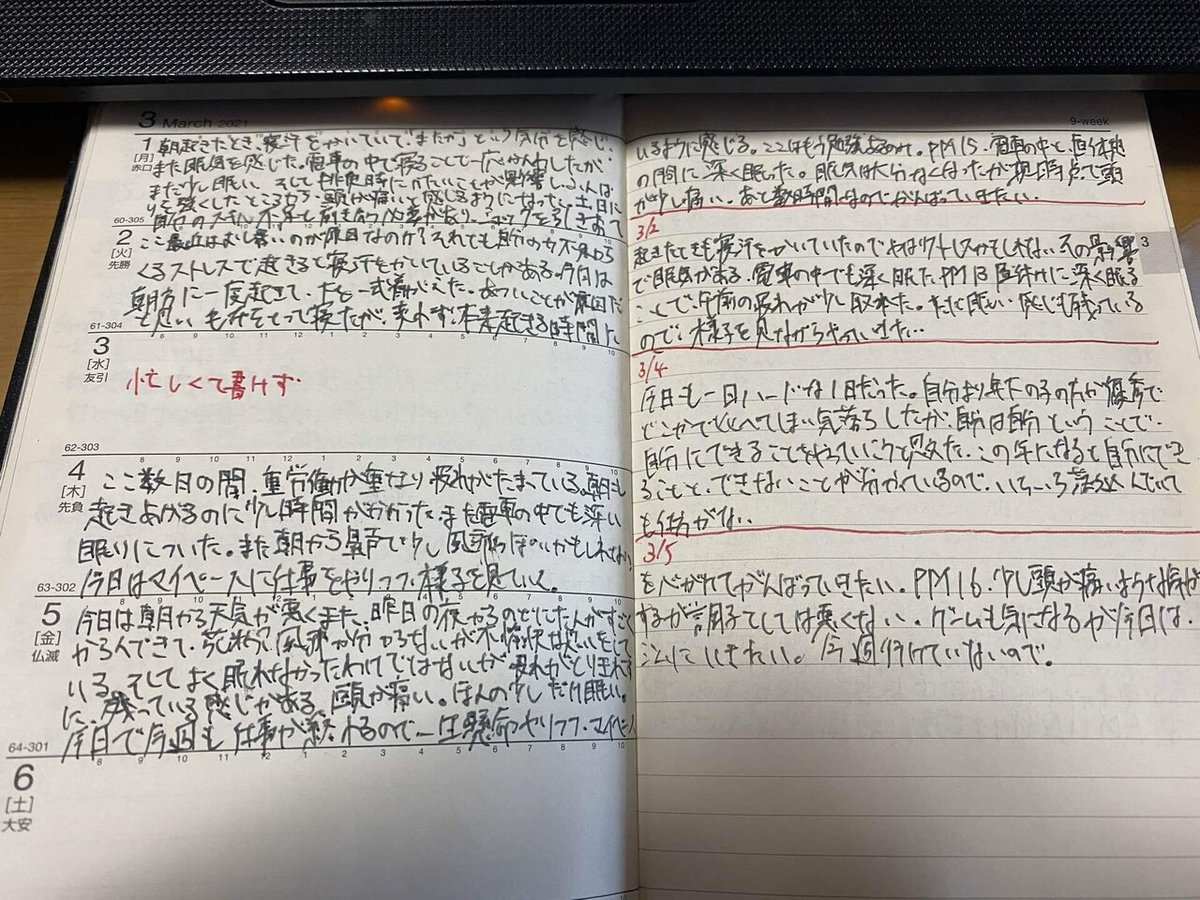 3 March 2021
1
[月]
赤口
朝起きたとき、寝汗をかいていて「またか」という気分を感じ.
また眠気を感じた。電車の中で寝ることで一応かいわしたが
まだ少し眠い。そして排便時にかたいことが影響し、ふんば
りを強くしたところから、頭が痛いと感じるようになった。土日に
自分のスキル不足と向き合う必要があり
60-305
2
[火]
先勝
ここ最近はむし暑いのが原因なのか？それでも自分の力不足から
くるストレスで起きると寝汗をかいていることがある。今日は
朝方に一度起きて、下を一式着がえた。あついことが原因だ
と思い、もうふをとって寝たが、変わらず。本来起きる時間に
61-304
3
[水]
友引
忙しくて書けず.
62-303
4
[木]
先負
ここ数日の間、重労働が重なり疲れがたまっている。朝も
起きあげるのに少し時間がかかった。また電車の中でも深い
眠りについた。また朝から鼻声で少し風邪っぽいかもしれない
今日はマイペースに仕事をやりつつ、様子を見ていく。
63-302
5
[金]
仏滅
今日は朝から天気が悪くまた、昨日の夜からのどにたんがすごく
からんできて、花粉症か風邪か分からないが不愉快な思いをして
いる。そしてよく眠れなかったわけではないが疲れがとりきれず
に、残っている感じがある。頭が痛い。ほんの少しだけ眠い。
今日で今週も仕事が終わるので、一生懸命やりつつ、マイペース
64-301
6
[土]
大安
9-week
いるように感じる。ここはもう勉強あるのみ。PM15、電車の中と、昼休憩
の間に深く眠った。眠気は大分なくなったが現時点で頭
が少し痛い。あと数時間なのでがんばっていきたい.
3/2
起きたときも寝汗をかいていたのでやはりストレスかもしれない。その影響
で眠気がある。電車の中でも深く眠た。PM13 昼休けいに深く眠る
ことで、午前の疲れが少し取れた。ただ眠い感じも残っている
ので、様子を見ながらやっていきたい.
3/4
今日も一日ハードな1日だった。自分より年下の子の方が優秀で
どこかでくらべてしまい気落ちしたが、自分は自分ということで.
自分にできることをやっていこうと思えた。この年になると自分にでき
ることと、できないことが分かっているので、いちいち落ち込んでいて
も仕方がない.
3/5
をくずれてがんばっていきたい。PM16、少し頭が痛いような気が
するが調子としては悪くない。ゲームも気になるが今日は、
ジムにいきたい。今週行けていないので。
3